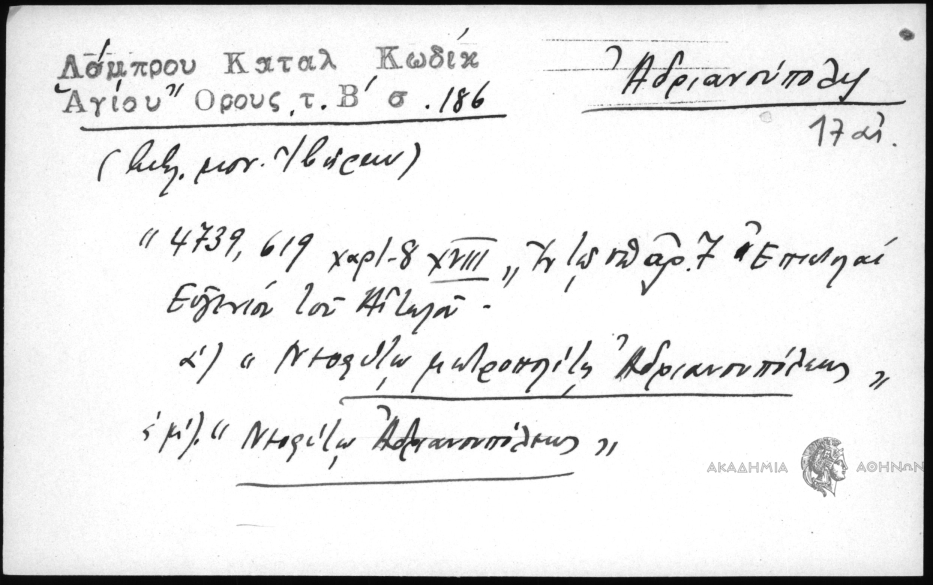 Λάμπρου Καταλ Κωδίκ
Ἁγίου Ὄρους τ. Β΄ σ. 186
Ἀδριανούπολις
17 αἰ.
(Βιβλ. μον. Ἰβήρων)
" 4739, 619 χαρτ. 8 XVIII " Ἐν τῷ ὑπ ἀρ. 7 " Ἐπιστολαί
Εὐγενίου τοῦ Αἰτωλοῦ -
α΄) " Νεοφύτῳ μητροπολίτῃ Ἀδριανουπόλεως "
" Νεοφύτῳ Ἀδριανουπόλεως "
ΑΚΑΔΗΜΙΑ ΑΘΗΝΩΝ